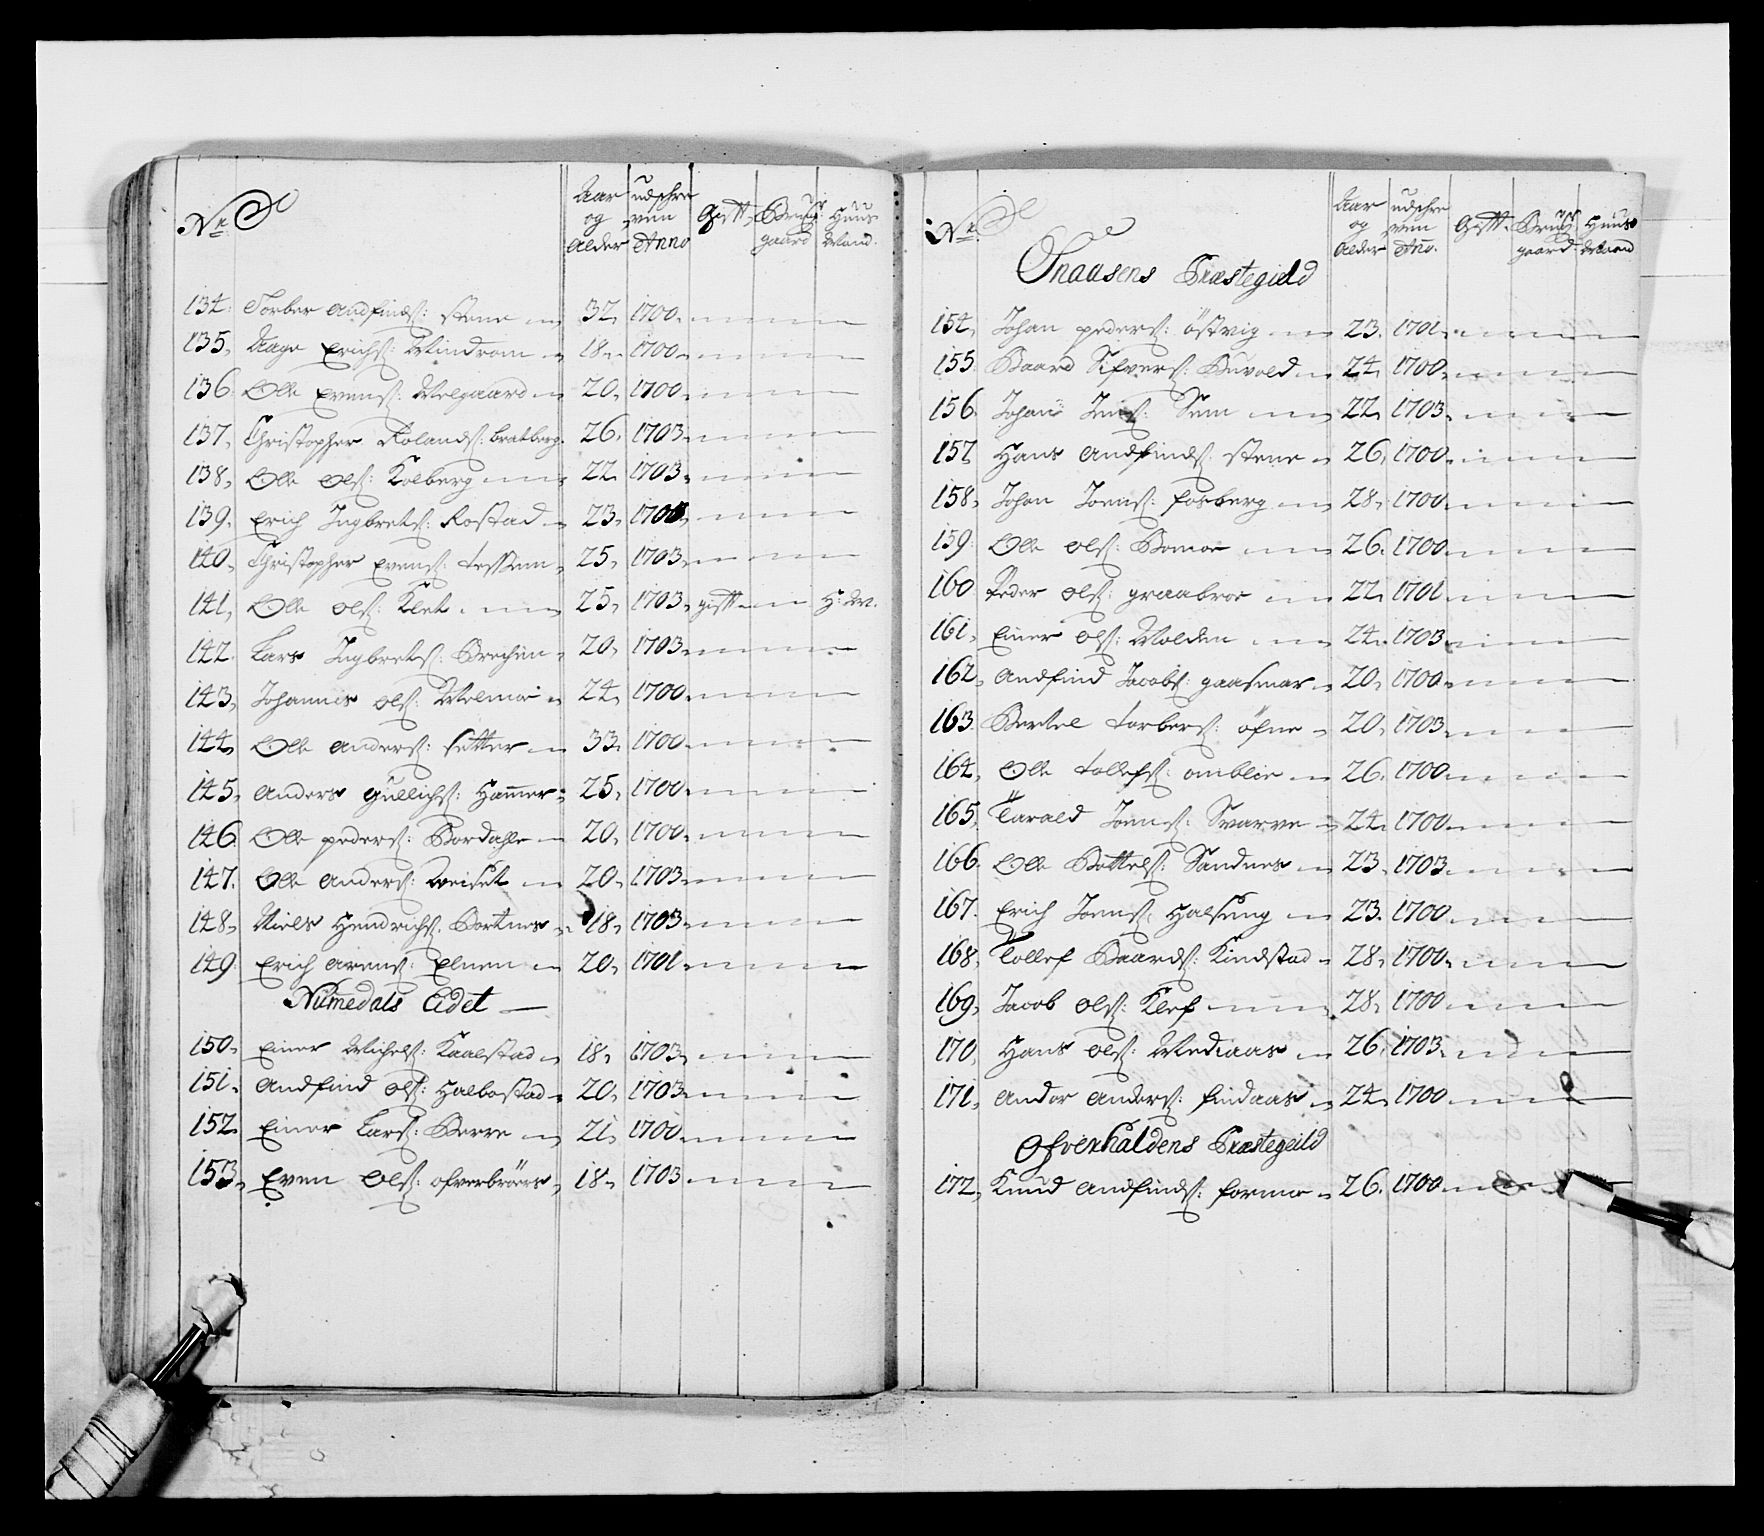 Nr. Aar og Alder udschreven Anno Gift. Brug: gaard Huus Mand.
134. Torber Andfinds: Stene 32. 1700.
135. Aage Erichs: Mindrom 18. 1700.
136. Olle Evens: Melgaard 20. 1700
137. Christopher Rolands: Bratberg. 26. 1703.
138. Olle Ols: Kolberg 22 1703.
139. Erich Ingbrets: Rostad 23. 1701.
140. Christopher Evens: Tessem 25. 1703.
141. Olle Ols: Klet. 25. 1703. gift H: M.
142. Lars Ingbrets: Brechen 20. 1703.
143. Johannes Ols: Melmoe 24. 1700.
144. Olle Anders: Setter 33. 1700
145. Anders Gullichs: Hammer 25. 1700.
146. Olle peders: Bordahle 20. 1700.
147. Olle Anders: Weiset 20. 1703.
148. Niels Hendrichs. Bortnes 18. 1703
149. Erich Arens: Elnen 20. 1701
Numedals Eidet
150. Einer Michels: Kaalstad 18. 1703.
151. Andfind Ols: Halbostad 20. 1703.
152. Einer Lars: Berre 21. 1700
153. Even Ols: ofverbröers 18. 1703
Nr. Aar og Alder udschreven Ano. Gift. Brug: gaard. Huus Mand
Snaasens Præstegield
154. Johan peders: östvig 23. 1701.
155. Baard Sifvers: Buvold 24. 1700.
156. Johan Jens: Sem 22. 1703.
157. Hans Andfinds: Stene 26. 1700.
158. Johan Joens: fosberg 28. 1700
159. Olle Ols: Bomoe 26. 1700
160 Peder Ols: graabroe 22. 1701
161. Einer Ols: Molden 24. 1703
162. Andfind Jacobs: gaasmar 20. 1700.
163. Bertel Torbers: öfne 20. 1703
164. Olle Tollefs: omblie 26. 1700
165. Tarald Joens: Svarve 24. 1700
166. Olle Bottels: Sandnes 23. 1703
167. Erich Joens: Halsung 23. 1700
168. Tollef Baards: Kindstad 28. 1700.
169. Jacob Ols: Klef 28. 1700
170. Hans Ols: Mediaas 26. 1703.
171. Ander Anders: findaas 24. 1700
Ofverhaldens Præstegeild
172. Knud Andfinds: formoe 26. 1700